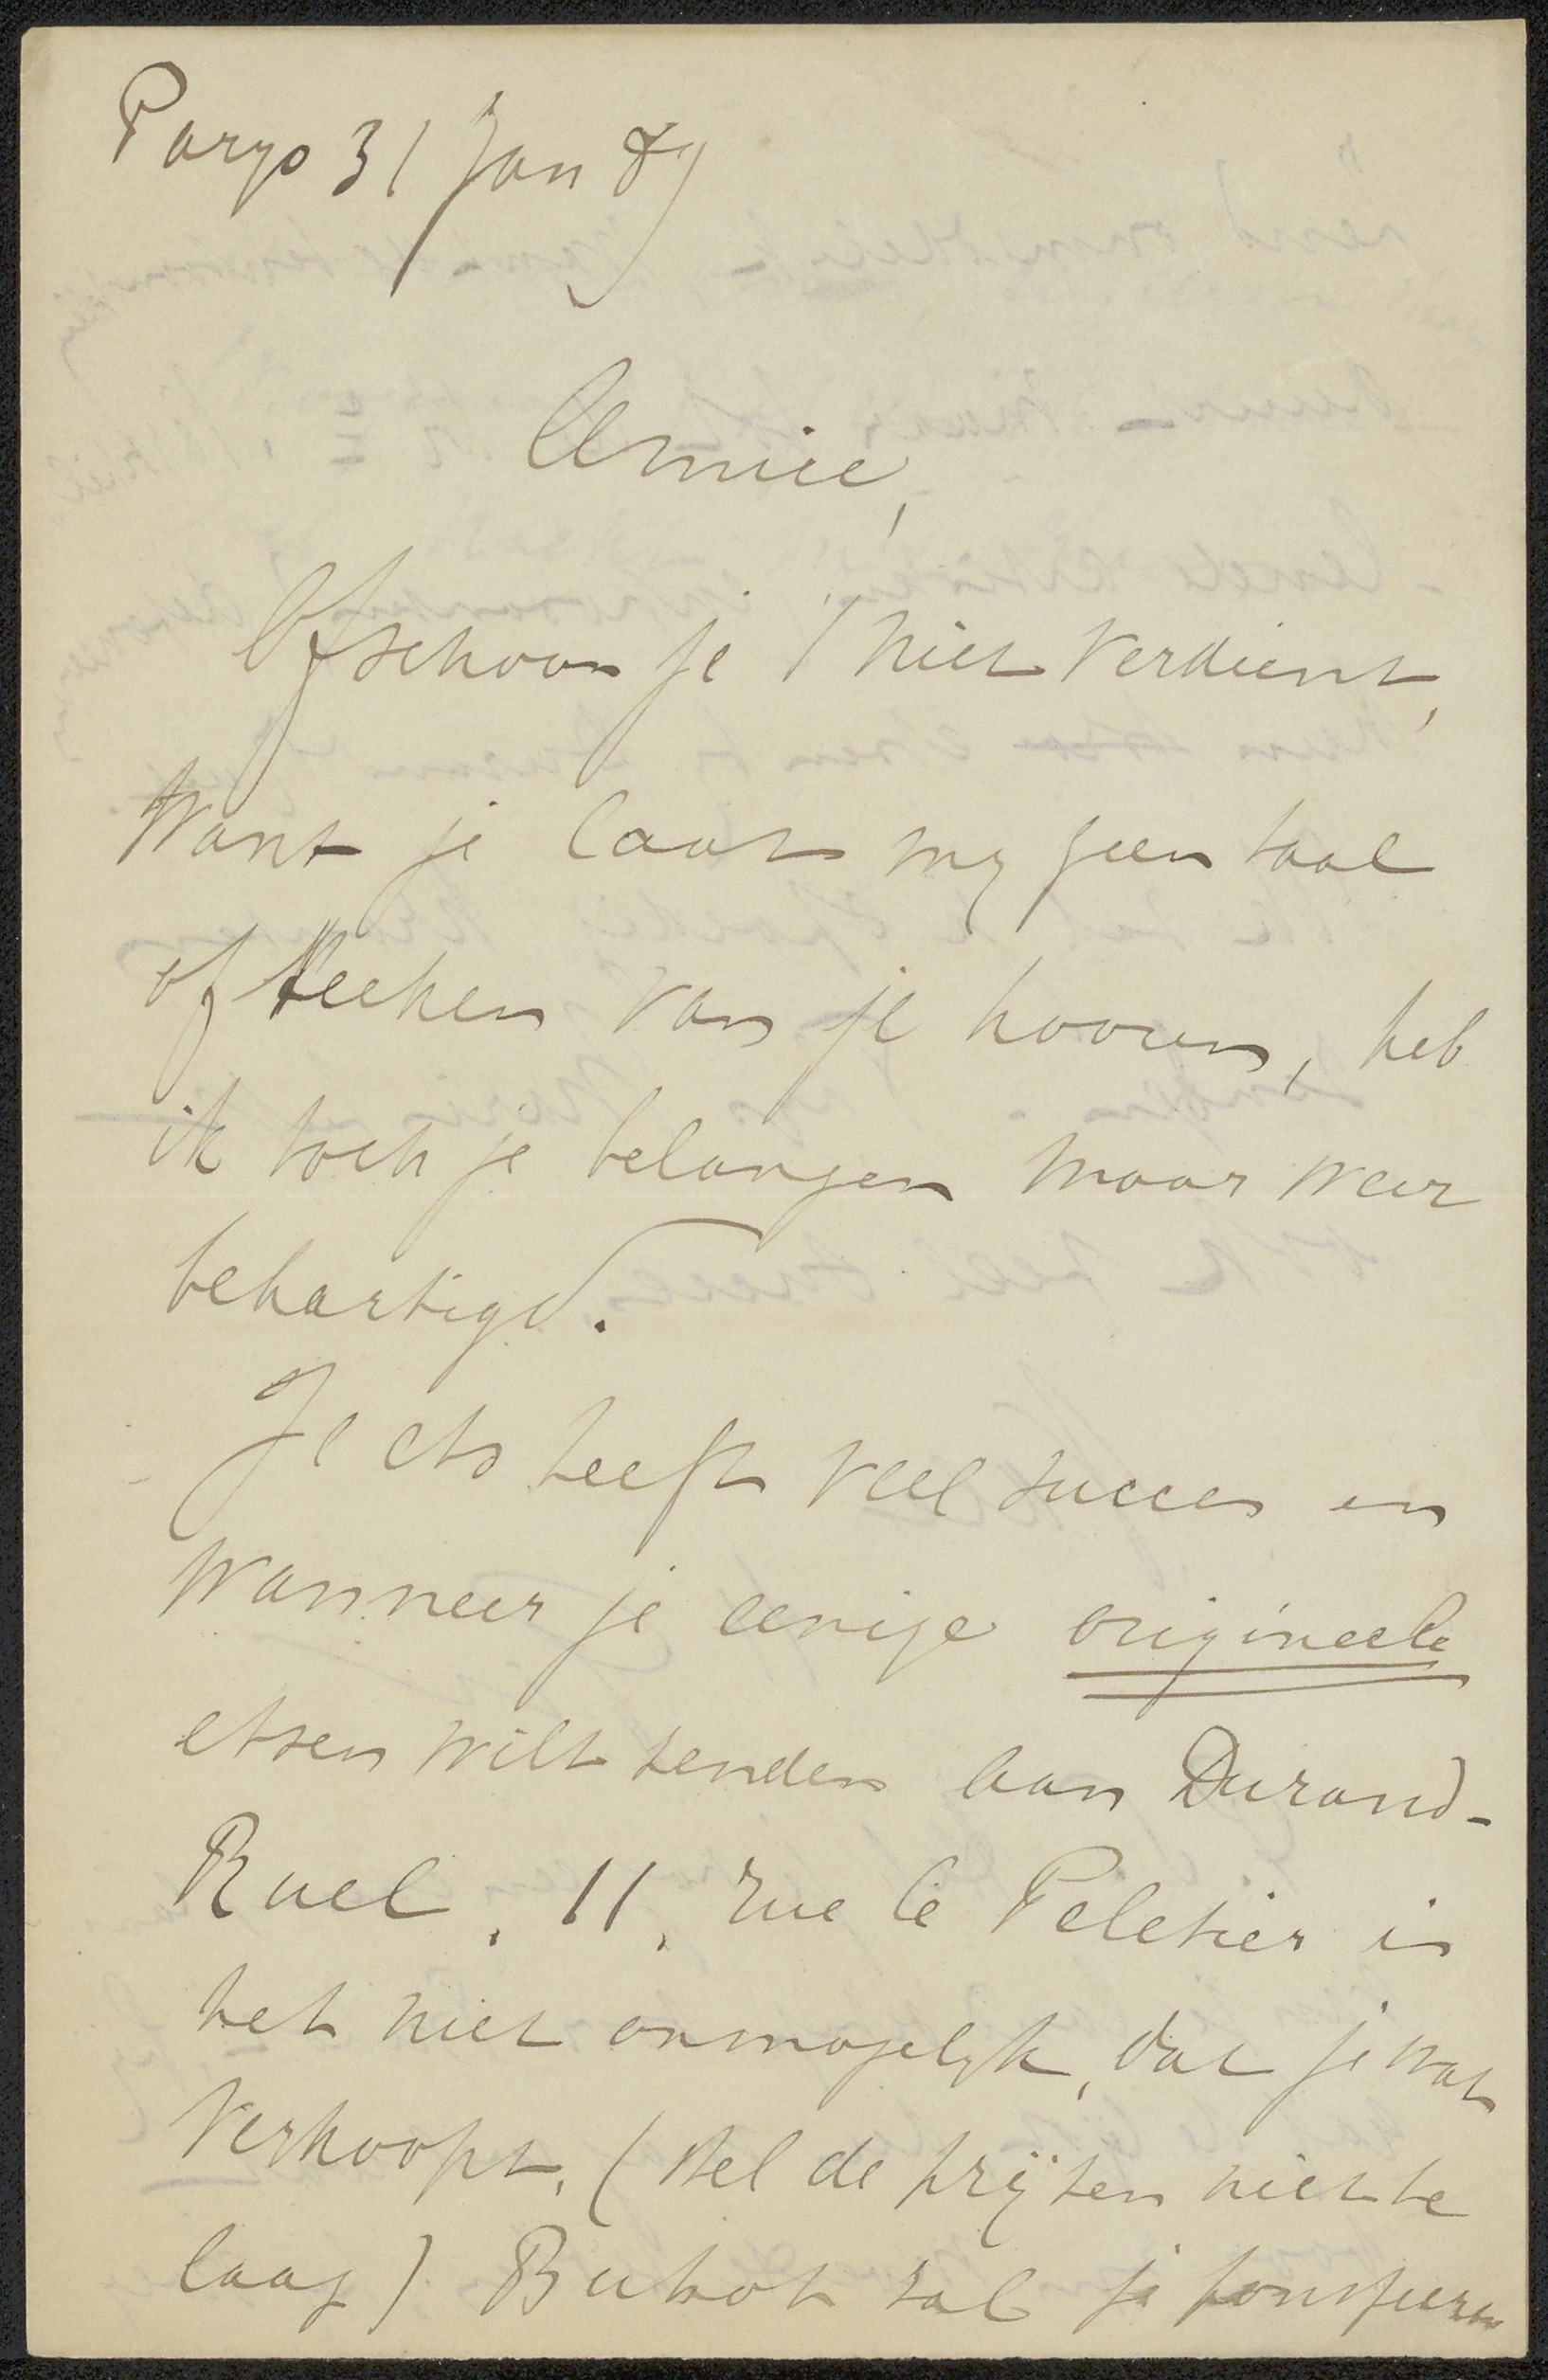 Parys 31 Jan 89
Amice,
Ofschoon je 't niet verdient,
want je laat my geen taal
of teeken van je hooren, heb
ik toch je belangen maar weer
behartigd.
Je ets heeft veel succes en
wanneer je eenige origineele
etsen wilt zenden aan Durand-
Ruel, 11, rue le Peletier is
het niet onmogelyk, dat je wat
verkoopt. (stel de prijzen niet te
laag) Buhot zal je